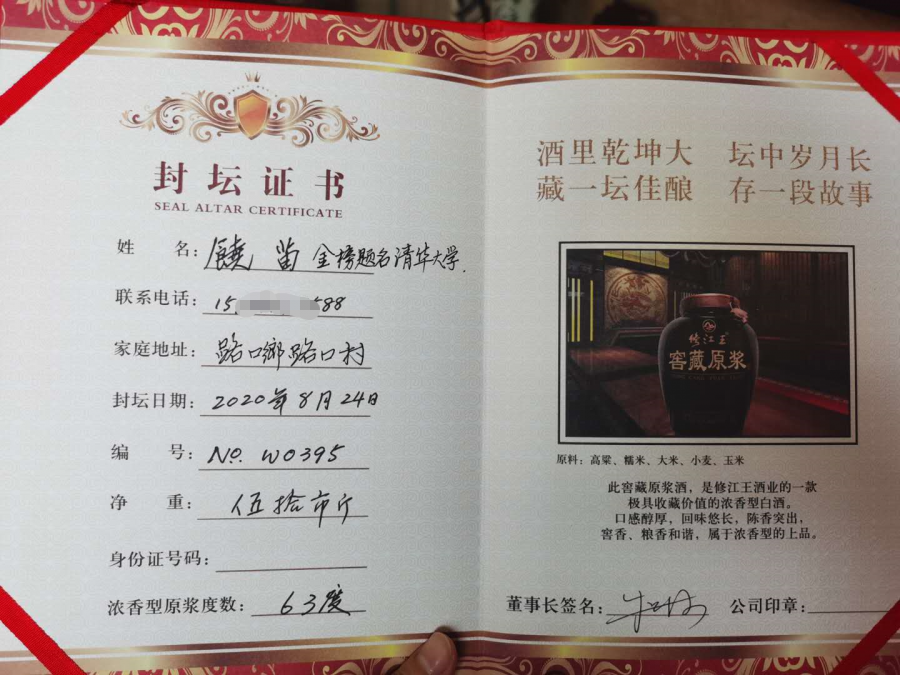 封坛证书
SEAL ALTAR CERTIFICATE
姓 名: 饶 笛 金榜题名清华大学.
联系电话: 15 588
家庭地址: 路口乡路口村
封坛日期: 2020年8月24日
编 号: No. W0395
净 重: 伍拾市斤
身份证号码:
浓香型原浆度数: 63度
酒里乾坤大 坛中岁月长
藏一坛佳酿 存一段故事
修江王
窖藏原浆
原料: 高粱、糯米、大米、小麦、玉米
此窖藏原浆酒，是修江王酒业的一款
极具收藏价值的浓香型白酒。
口感醇厚，回味悠长，陈香突出，
窖香、粮香和谐，属于浓香型的上品。
董事长签名:
公司印章: